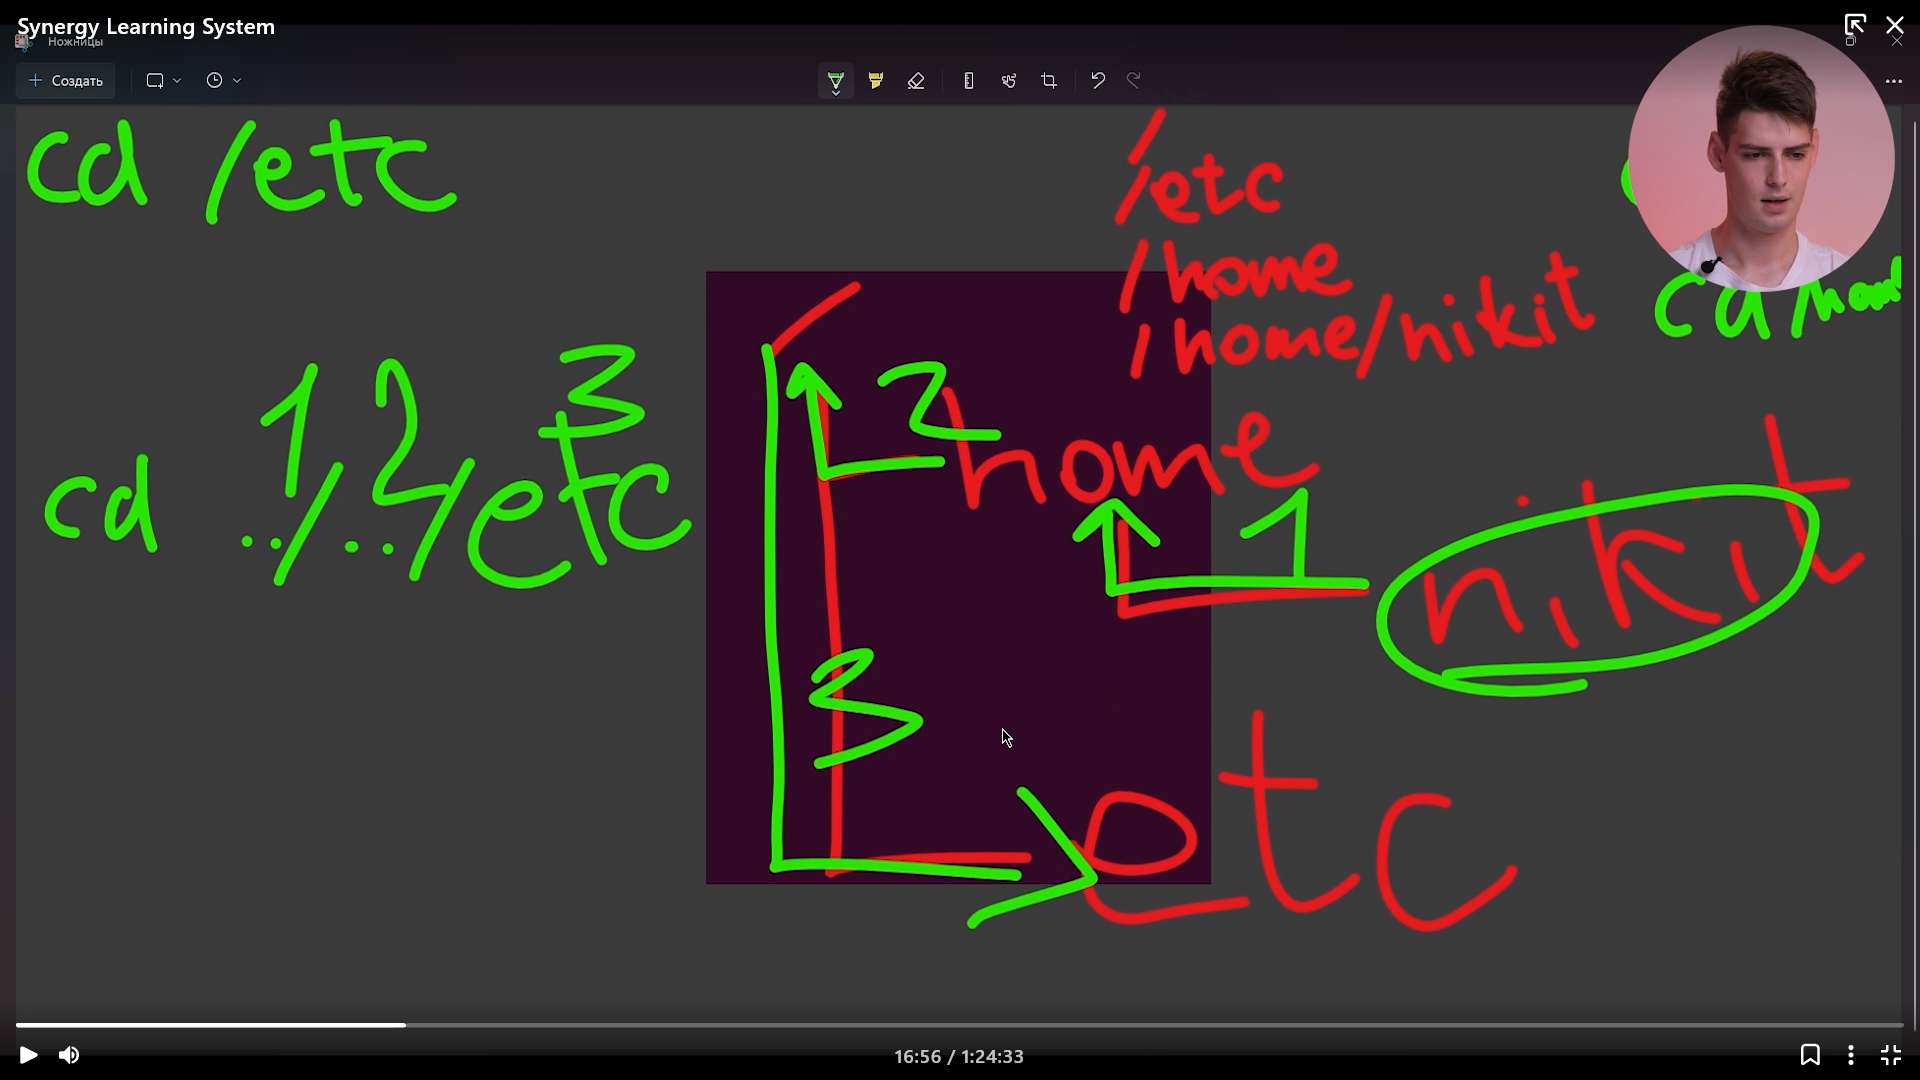 Synergy Learning System
Ножницы
Создать
cd /etc
/
/etc
/home
/home/nikit
cd /hom
1 2 3
cd ../../etc
2
home
1
nikit
3
etc
16:56 / 1:24:33